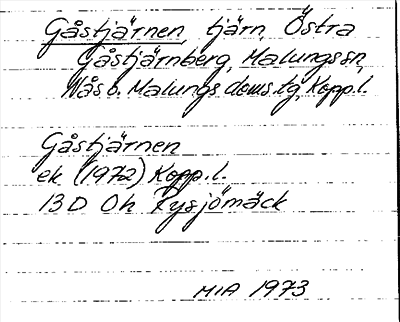 Gåstjärnen, tjärn, Östra
Gåstjärnberg, Malungs sn,
Nås o. Malungs doms.tg, Kopp.l.
Gåstjärnen
ek (1972) Kopp.l.
13 D Oh Fysjömäck
MIA 1973